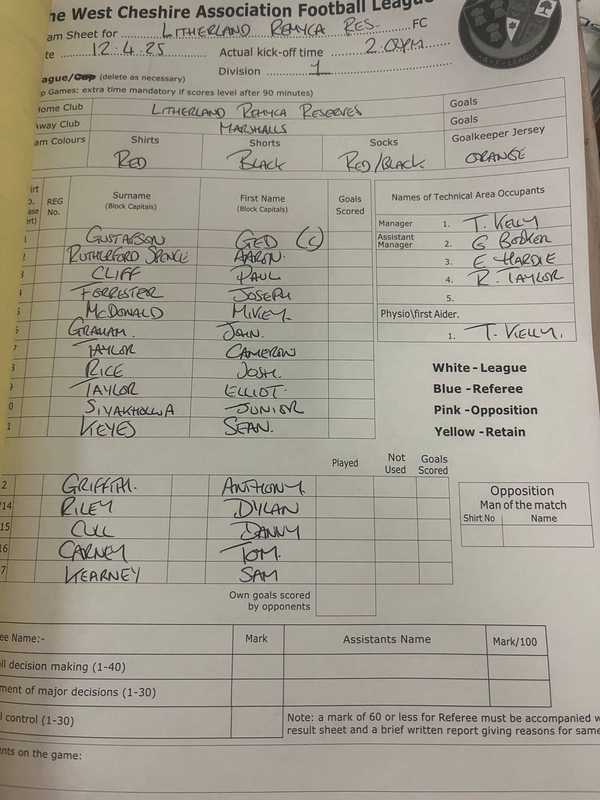 he West Cheshire Association Football League
am Sheet for LITHERLAND REMYCA RES. FC
te 12.4.25 Actual kick-off time 2.00PM
Division 1
ague/Cup (delete as necessary)
p Games: extra time mandatory if scores level after 90 minutes)
Home Club LITHERLAND REMYCA RESERVES Goals
way Club MARSHALLS Goals
am Colours Shirts Shorts Socks Goalkeeper Jersey
RED BLACK RED/BLACK ORANGE
REG No. Surname (Block Capitals) First Name (Block Capitals) Goals Scored
Names of Technical Area Occupants
Manager 1. T. KELLY
Assistant Manager 2. G BOOKER
3. E HARDIE
4. R. TAYLOR
5.
Physio\first Aider.
1. T. KELLY.
GUSTAFSON GED (C)
RUTHERFORD SPENCE AARON.
CLIFF PAUL
FORRESTER JOSEPH
MCDONALD MIKEY.
GRAHAM. JOHN.
TAYLOR CAMERON
RICE JOSH.
TAYLOR ELLIOT.
JUNIOR
KEYES SEAN.
White - League
Blue - Referee
Pink - Opposition
Yellow - Retain
Played Not Used Goals Scored
2 GRIFFITH. ANTHONY.
/14 RILEY DYLAN
15 CULL DANNY
16 CARNEY TOM.
7 KEARNEY SAM
Opposition
Man of the match
Shirt No Name
Own goals scored
by opponents
ee Name:- Mark Assistants Name Mark/100
ll decision making (1-40)
ment of major decisions (1-30)
l control (1-30)
Note: a mark of 60 or less for Referee must be accompanied w
result sheet and a brief written report giving reasons for same
nts on the game: